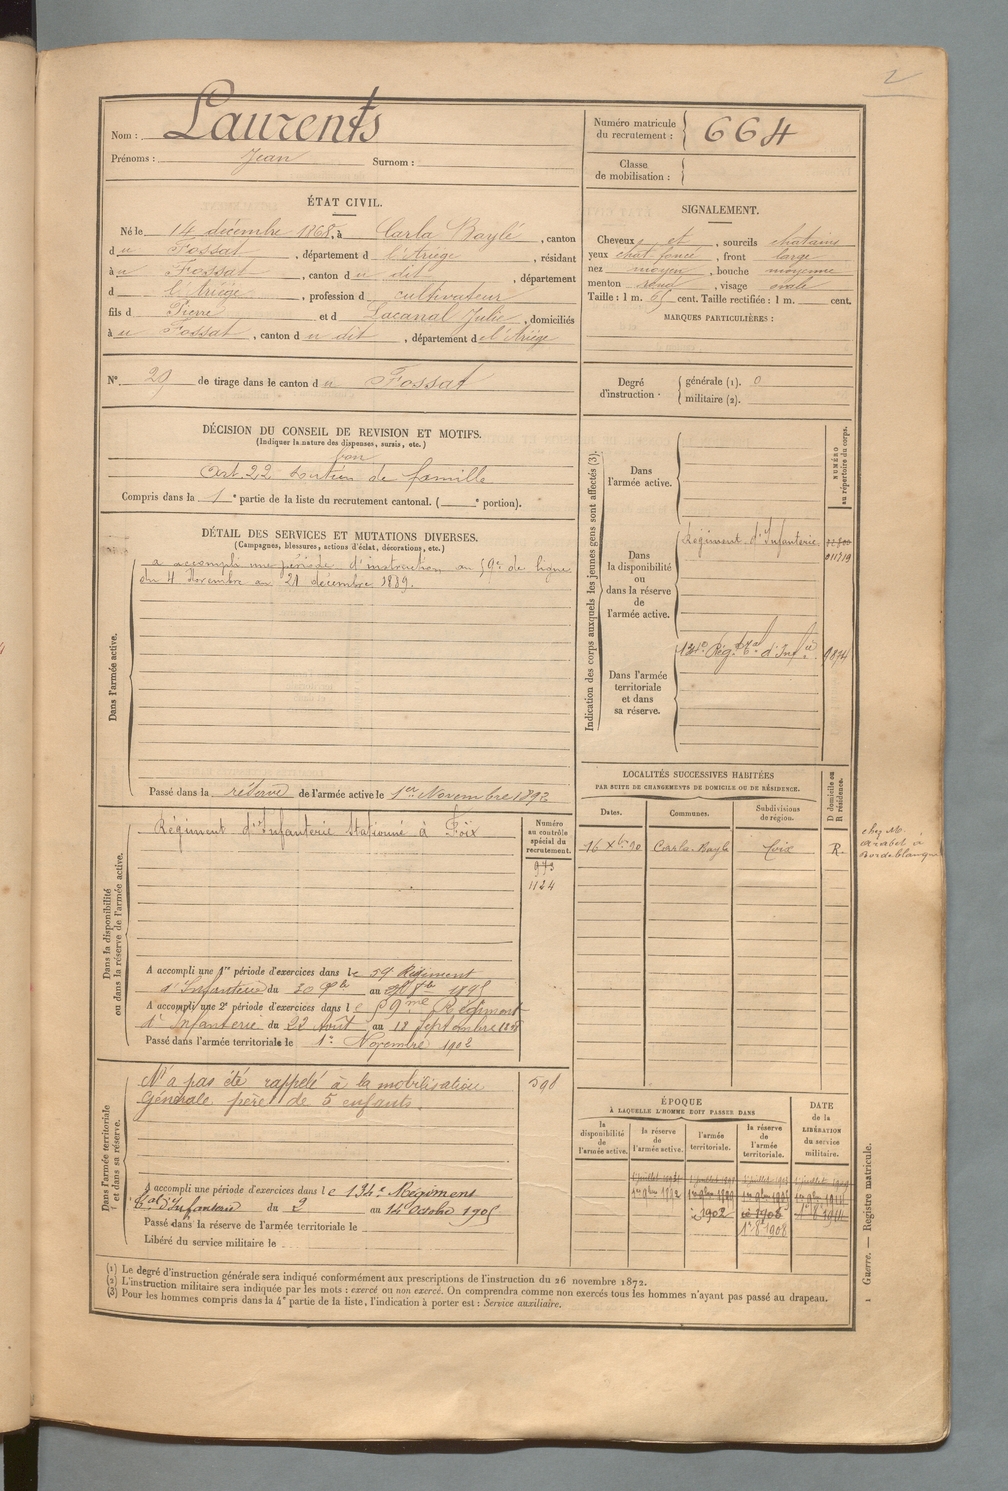 2
Nom : Laurents
Prénoms : Jean Surnom :
Numéro matricule du recrutement : 664
Classe de mobilisation :
ÉTAT CIVIL.
Né le 14 décembre 1868, à Carla Baylé, canton
du Fossat, département d l'Ariège, résidant
à u Fossat, canton du dit, département
d l'Ariège, profession d cultivateur
fils d Pierre et d Lacanal Julie, domiciliés
à u Fossat, canton du dit, département de l'Ariège
SIGNALEMENT.
Cheveux et, sourcils chatains
yeux chat. foncé, front large
nez moyen, bouche moyenne
menton rond, visage ovale
Taille : 1 m. 65 cent. Taille rectifiée : 1 m. cent.
MARQUES PARTICULIÈRES :
N° 29 de tirage dans le canton du Fossat
Degré d'instruction
générale (1). 0
militaire (2).
DÉCISION DU CONSEIL DE REVISION ET MOTIFS.
(Indiquer la nature des dispenses, sursis, etc.)
bon
Art. 22 soutien de famille
Compris dans la 1e partie de la liste du recrutement cantonal. ( e portion).
DÉTAIL DES SERVICES ET MUTATIONS DIVERSES.
(Campagnes, blessures, actions d'éclat, décorations, etc.)
Dans l'armée active.
a accompli une période d'instruction au 59e de ligne
du 4 Novembre au 21 décembre 1889.
Passé dans la réserve de l'armée active le 1er Novembre 1892
Indication des corps auxquels les jeunes gens sont affectés (3).
NUMÉRO au répertoire du corps.
Dans l'armée active.
Dans la disponibilité ou dans la réserve de l'armée active.
Régiment d'Infanterie
Dans l'armée territoriale et dans sa réserve.
134e Rég. Tal d'Infie 9874
Dans la disponibilité ou dans la réserve de l'armée active.
Régiment d'Infanterie Stationné à Foix
Numéro au contrôle spécial du recrutement.
973
1124
A accompli une 1re période d'exercices dans le 59 Régiment
d'Infanterie du 30 au 1895
A accompli une 2e période d'exercices dans le 59me Régiment
d'Infanterie du 22 Août au 18 Septembre 1898
Passé dans l'armée territoriale le 1er Novembre 1902
LOCALITÉS SUCCESSIVES HABITÉES
PAR SUITE DE CHANGEMENTS DE DOMICILE OU DE RÉSIDENCE.
D domicile ou R résidence.
Dates. Communes. Subdivisions de région.
16 Xbre 90 Carla-Bayle Foix R.
chez M.
Arabet à
Bordeblanque
Dans l'armée territoriale et dans sa réserve.
N'a pas été rappelé à la mobilisation
Générale père de 5 enfants.
A accompli une période d'exercices dans le 134e Régiment
Tal d'Infanterie du 2 au 14 Octobre 1905
Passé dans la réserve de l'armée territoriale le
Libéré du service militaire le
ÉPOQUE
À LAQUELLE L'HOMME DOIT PASSER DANS
la disponibilité de l'armée active.
la réserve de l'armée active.
l'armée territoriale.
la réserve de l'armée territoriale.
DATE de la LIBÉRATION du service militaire.
1902
1908
(1) Le degré d'instruction générale sera indiqué conformément aux prescriptions de l'instruction du 26 novembre 1872.
(2) L'instruction militaire sera indiquée par les mots : exercé ou non exercé. On comprendra comme non exercés tous les hommes n'ayant pas passé au drapeau.
(3) Pour les hommes compris dans la 4e partie de la liste, l'indication à porter est : Service auxiliaire.
1 Guerre. — Registre matricule.